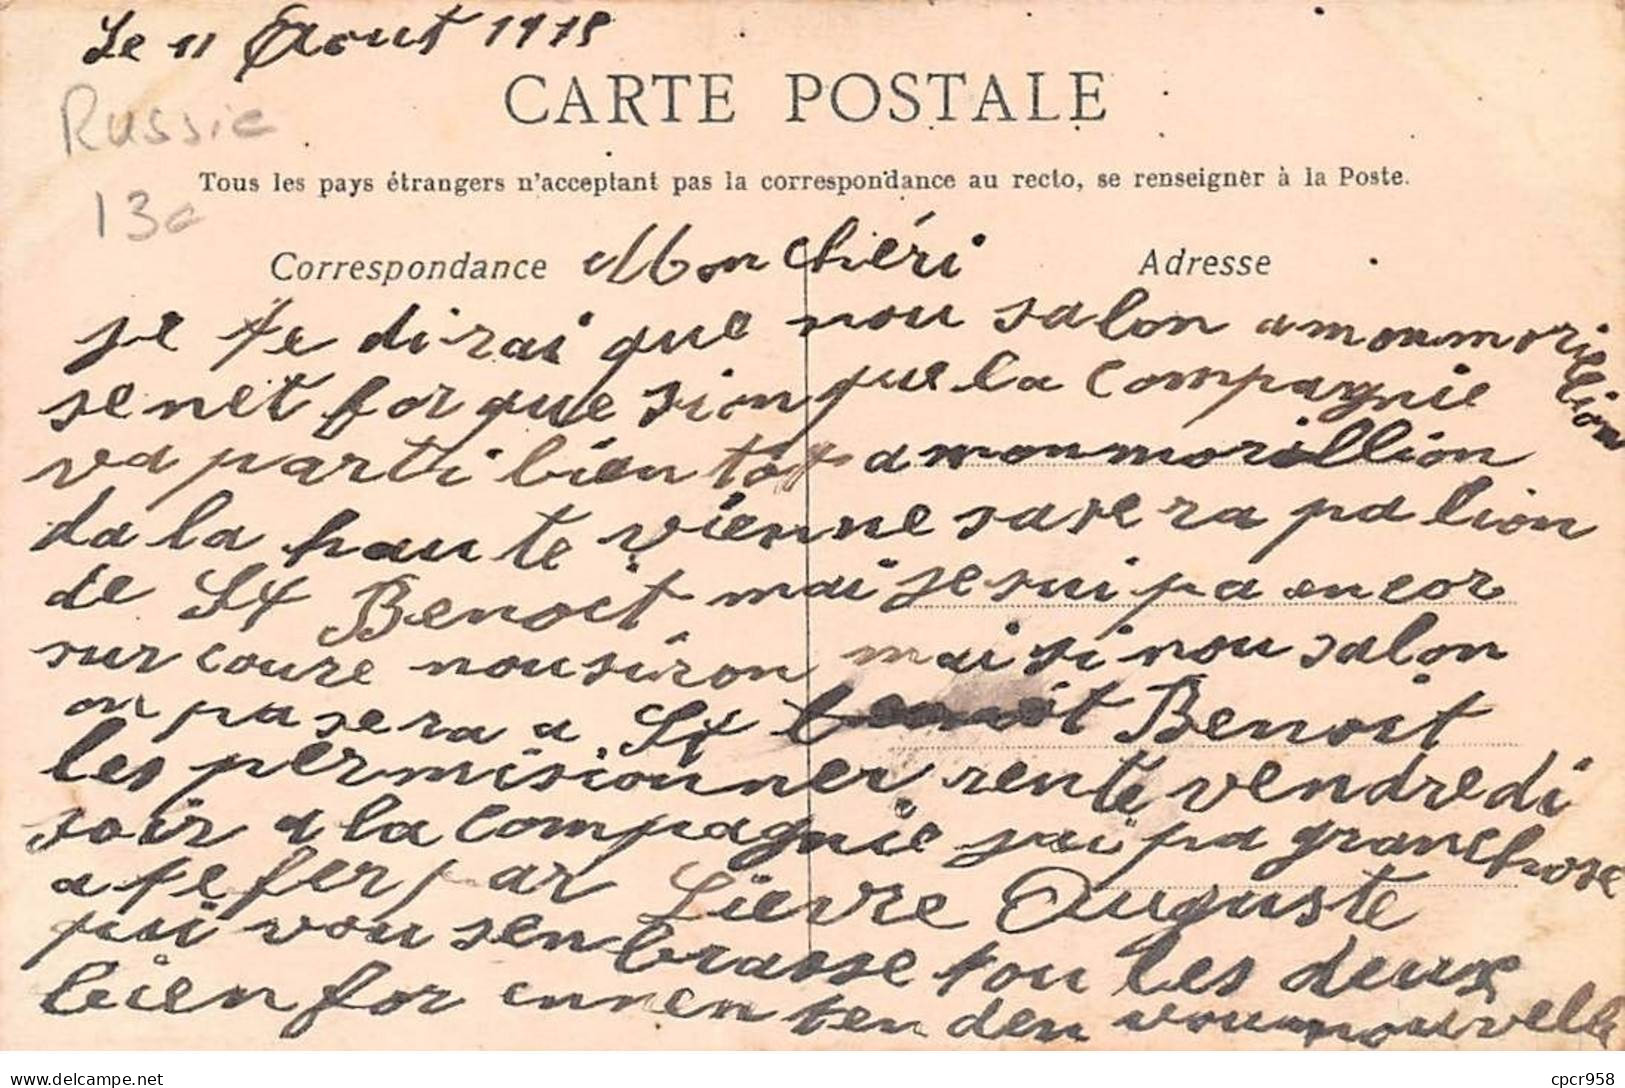 Le 11 Aout 1915
Russie
13e
CARTE POSTALE
Tous les pays étrangers n'acceptant pas la correspondance au recto, se renseigner à la Poste.
Correspondance Mon chéri Adresse
je te dirai que nou salon a monmorielion
se net for que sion que la compagnie
va parti bien tot a monmorillion
da la haute vienne sase ra pa lion
de St Benoit mai je sui pa encor
sur couse nousiron mai si nou salon
on pasera a St Benoit
les permisionner rente vendredi
soir a la compagnie jai pa granchose
a te fer par Lièvre Auguste
pui vou senbrasse tou les deux
bien for ennen ten den vou nouvelle
cpcr958